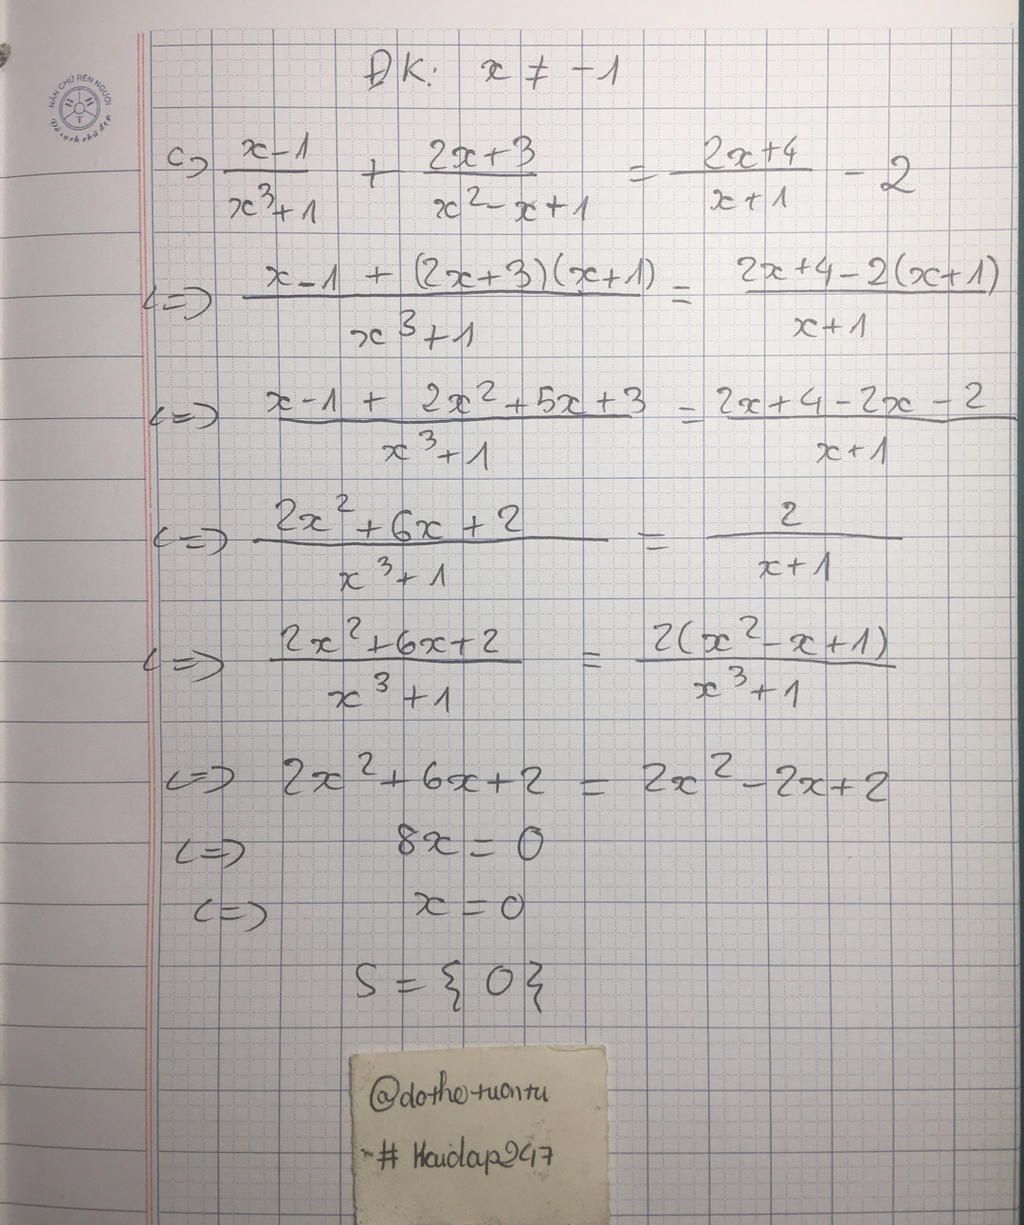 NẮN CHỮ RÈN NGƯỜI
Vở sạch chữ đẹp
ĐK: x ≠ -1
c) (x-1)/(x³+1) + (2x+3)/(x²-x+1) = (2x+4)/(x+1) - 2
<=> (x-1 + (2x+3)(x+1))/(x³+1) = (2x+4-2(x+1))/(x+1)
<=> (x-1 + 2x²+5x+3)/(x³+1) = (2x+4-2x-2)/(x+1)
<=> (2x²+6x+2)/(x³+1) = 2/(x+1)
<=> (2x²+6x+2)/(x³+1) = 2(x²-x+1)/(x³+1)
<=> 2x²+6x+2 = 2x²-2x+2
<=> 8x = 0
<=> x = 0
S = { 0 }
@dothetuontu
# Hoidap247